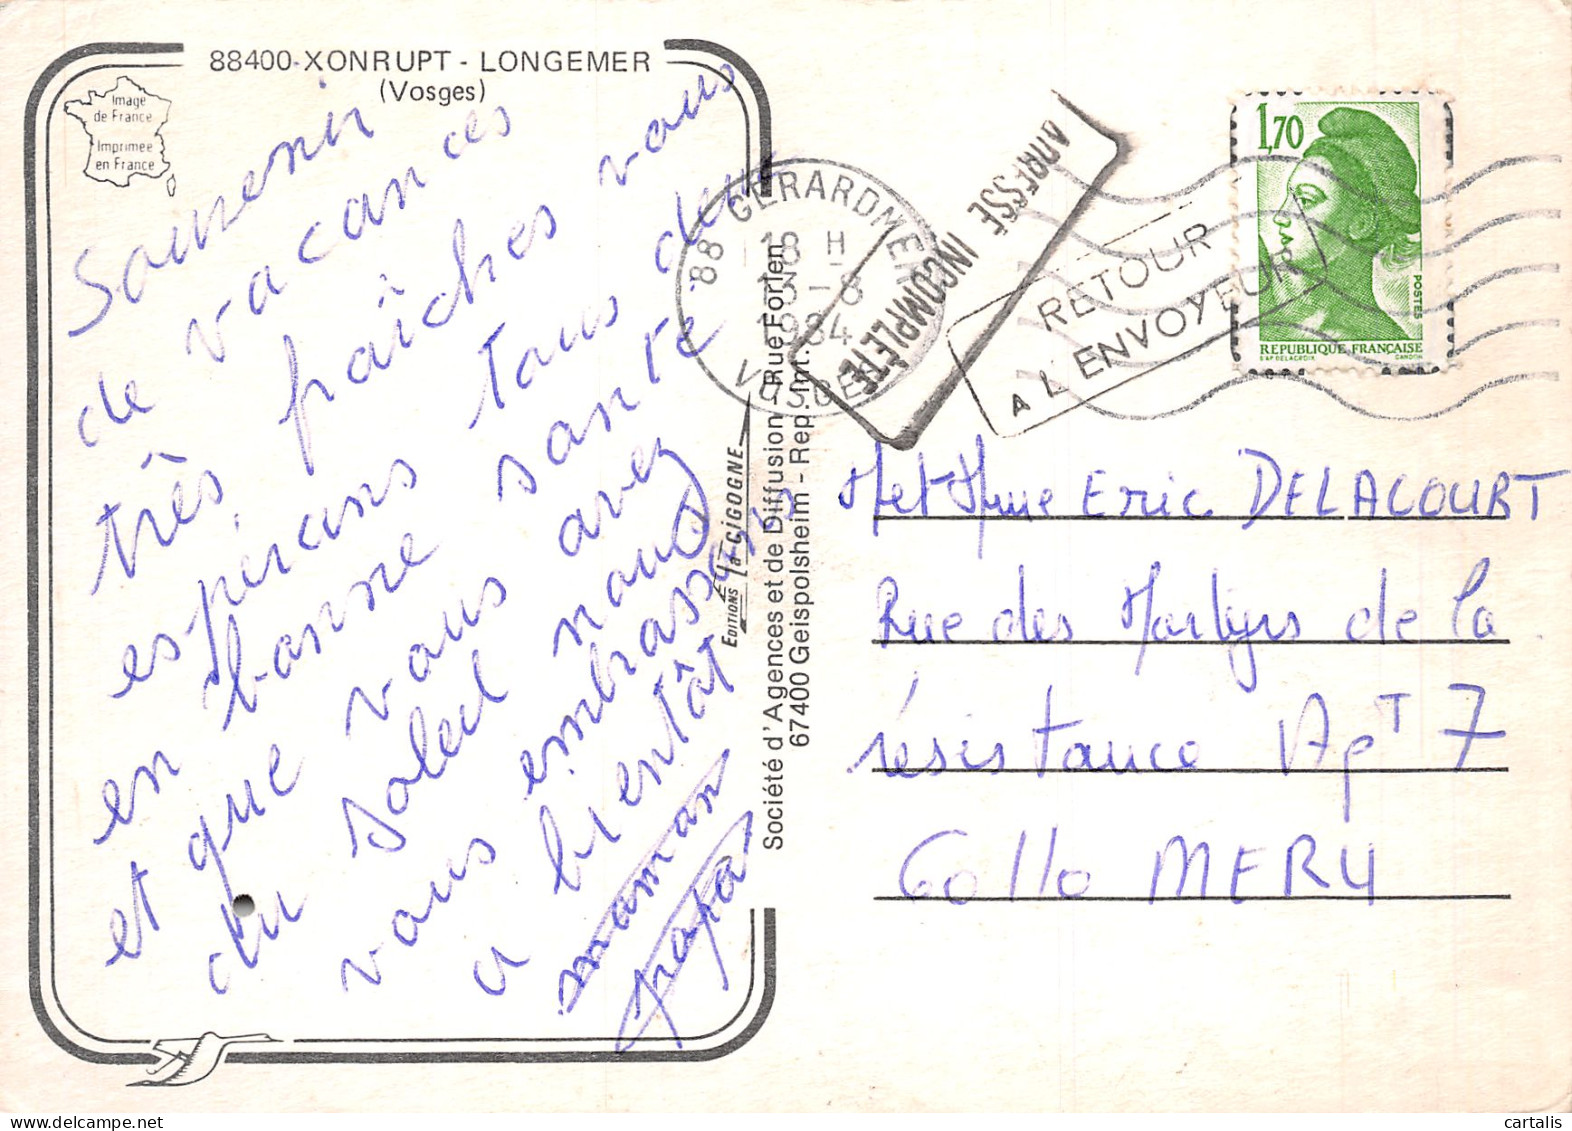 88400-XONRUPT - LONGEMER
(Vosges)
Image
de France
Imprimée
en France
Souvenir
de vacances
très fraîches vous
espérons tous deux
en bonne santé
et que vous avez
du soleil nous
vous embrassons
a bientôt
maman
papa
EDITIONS la CIGOGNE
Société d'Agences et de Diffusion - Rue Forlen
67400 Geispolsheim - Rep. Int.
88 GERARDMER
18 H
3-8
1984
VOSGES
ADRESSE INCOMPLÈTE
RETOUR
A L'ENVOYEUR
1,70
POSTES
REPUBLIQUE FRANÇAISE
D'AP DELACROIX GANDON
M et Mme Eric DELACOURT
Rue des Martyrs de la
résistance Apt 7
60110 MERU
cartalis